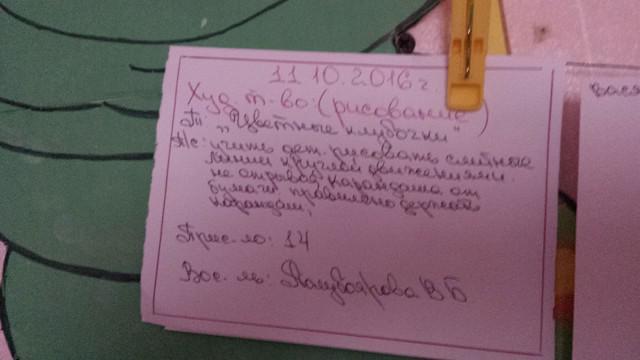 11.10.2016г.
Худ. т-во: (рисование)
Т: "Цветные клубочки"
П/с: учить дет. рисовать слитные
линии круглой движениями.
не отрывая карандаша от
бумаги, правильно держать
карандаш.
Прис-ло: 14
Вос-ль: В Б
вася